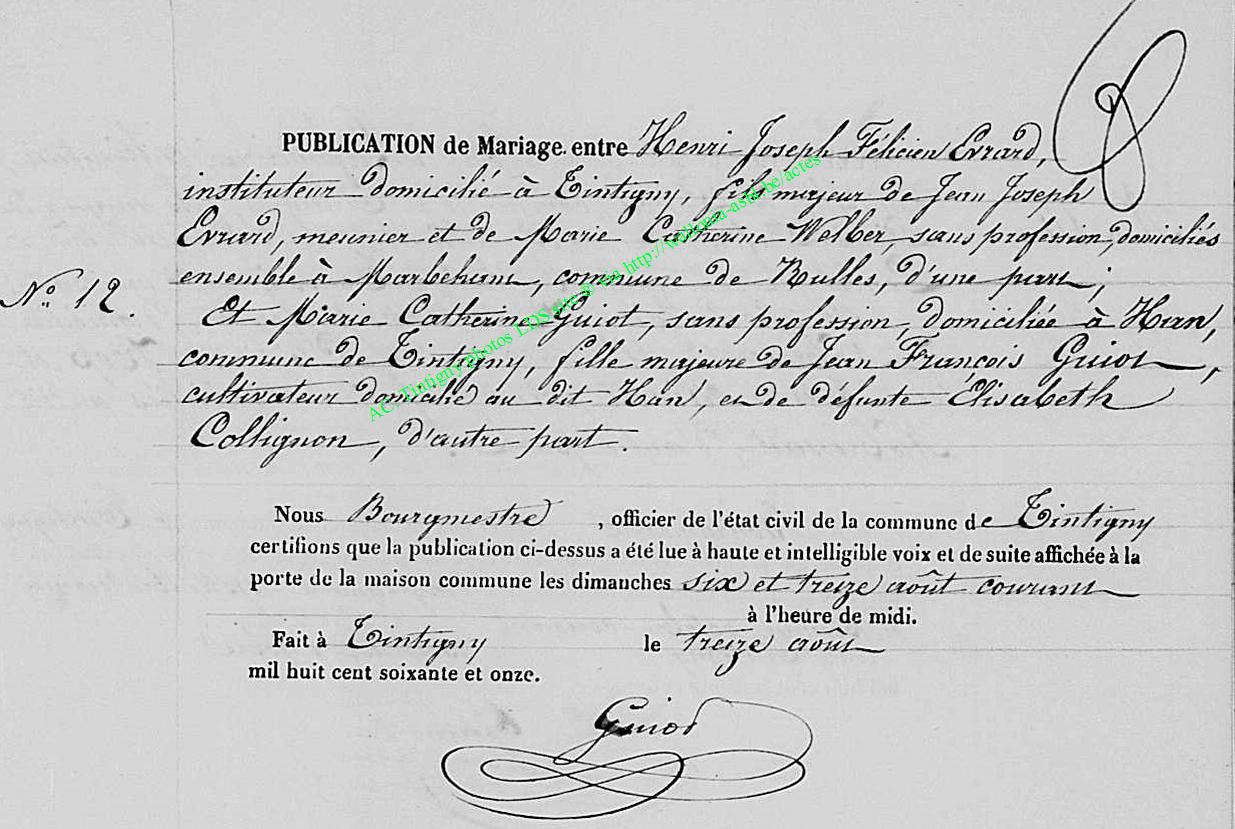 PUBLICATION de Mariage entre Henri Joseph Félicien Evrard,
instituteur domicilié à Tintigny, fils majeur de Jean Joseph
Evrard, meunier et de Marie Catherine Welber, sans profession, domiciliés
ensemble à Marbehan, commune de Rulles, d'une part;
No. 12.
Et Marie Catherine Guiot, sans profession, domiciliée à Han,
commune de Tintigny, fille majeure de Jean François Guiot,
cultivateur domicilié au dit Han, et de défunte Elisabeth
Collignon, d'autre part.
Nous Bourgmestre, officier de l'état civil de la commune de Tintigny
certifions que la publication ci-dessus a été lue à haute et intelligible voix et de suite affichée à la
porte de la maison commune les dimanches six et treize août courant
à l'heure de midi.
Fait à Tintigny le treize août
mil huit cent soixante et onze.
Guiot